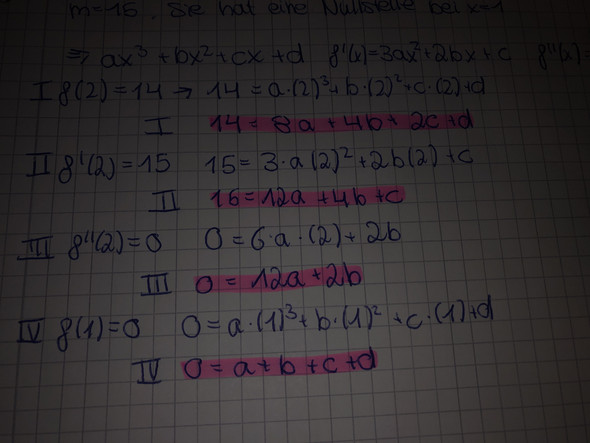 m=15. Sie hat eine Nullstelle bei x=1
⇒ ax³ + bx² + cx + d f'(x)=3ax²+2bx+c f''(x)=
I f(2)=14 → 14 = a·(2)³+b·(2)²+c·(2)+d
I 14 = 8a + 4b + 2c + d
II f'(2) = 15 15 = 3·a(2)²+2b(2)+c
II 15 = 12a + 4b + c
III f''(2) = 0 0 = 6·a·(2) + 2b
III 0 = 12a + 2b
IV f(1) = 0 0 = a·(1)³ + b·(1)² + c·(1)+d
IV 0 = a + b + c + d